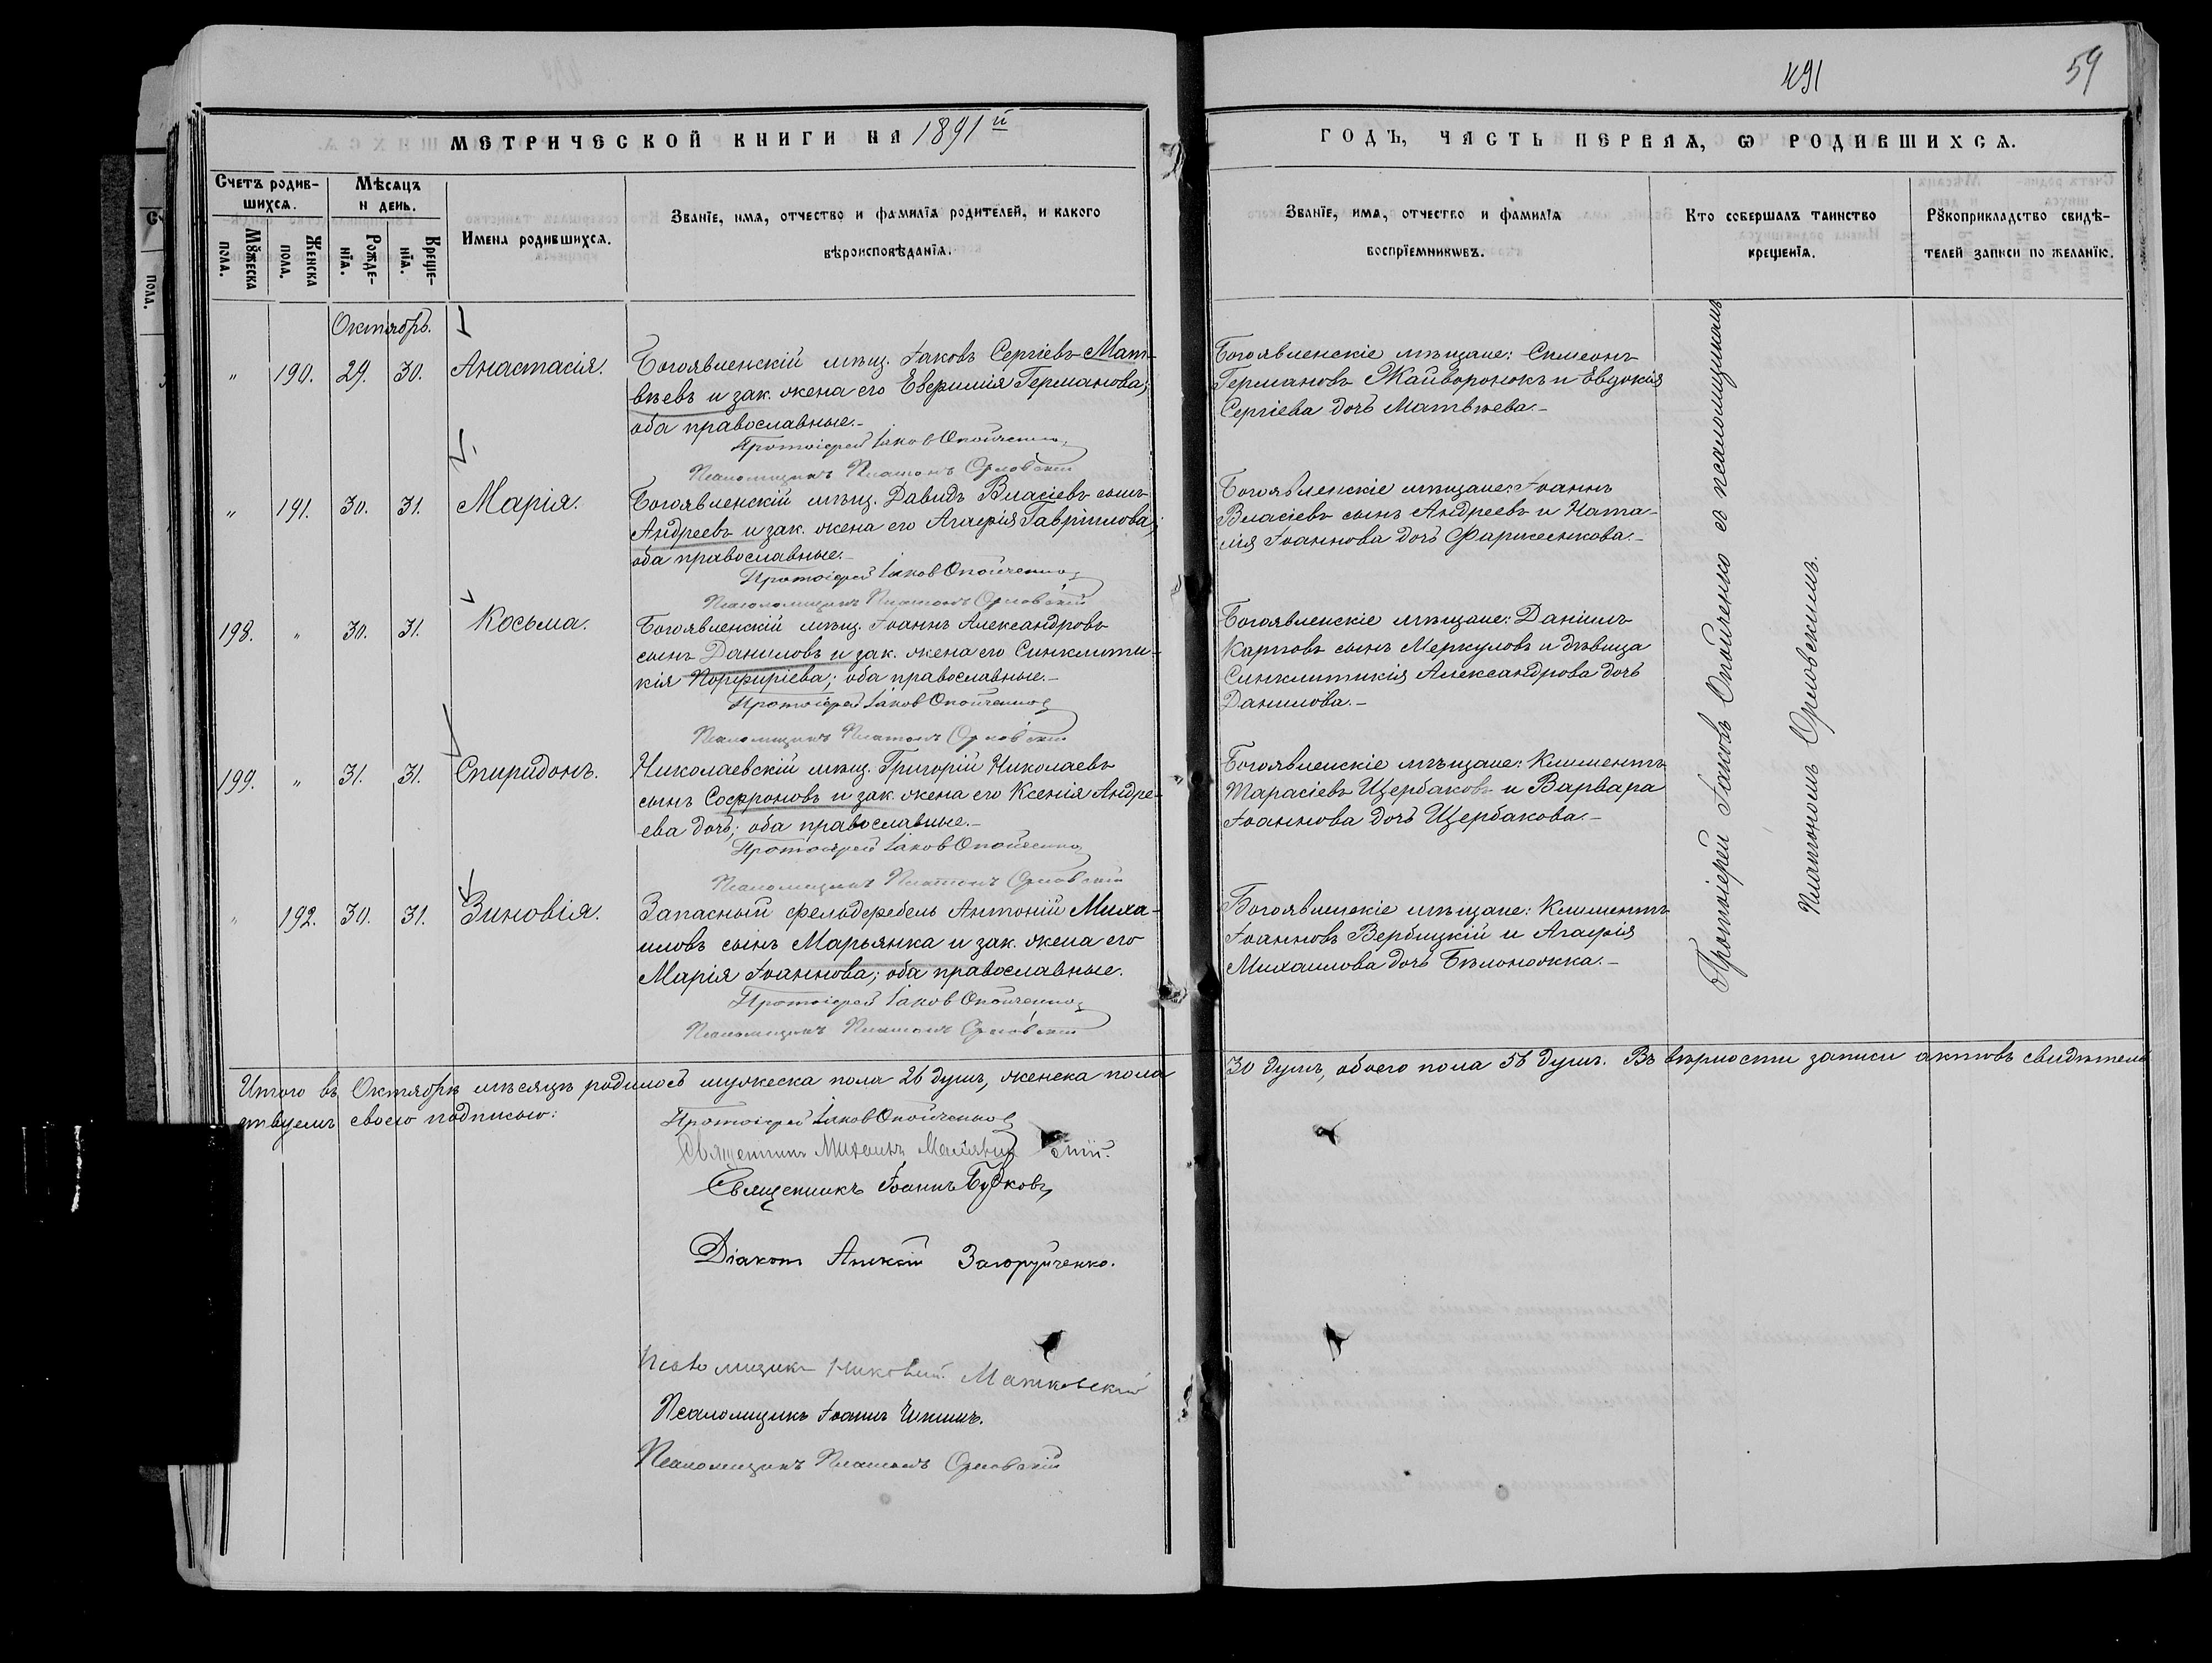 491
59
МЕТРИЧЕСКОЙ КНИГИ НА 1891й
ГОДЪ, ЧАСТЬ ПЕРВАЯ, Ѡ РОДИВШИХСѦ.
Счетъ родив-
шихсѧ.
Мѣсѧцъ
и день.
Мꙋжеска
пола.
Женска
пола.
Рожде-
нїѧ.
Креще-
нїѧ.
Имена родившихсѧ.
Званїе, имѧ, отчество и фамилїѧ родителей, и какого
вѣроисповѣданїѧ.
Званїе, имѧ, отчество и фамилїѧ
воспрїемникѡвъ.
Кто совершалъ таинство
крещенїѧ.
Рꙋкоприкладство свидѣ-
телей записи по желанїю.
Октябрь.
" 190. 29. 30. Анастасія.
Богоявленскій мѣщ. Іаковъ Сергіевъ Мат-
вѣевъ и зак. жена его Евфимія Германова;
оба православные.-
Протоіерей Іаковъ Опойченко
Псаломщикъ Платонъ Орловскій
Богоявленскіе мѣщане: Симеонъ
Германовъ Жайворонокъ и Евдокія
Сергіева дочь Матвѣева.-
" 191. 30. 31. Марія.
Богоявленскій мѣщ. Давидъ Власіевъ сынъ
Андреевъ и зак. жена его Агафія Гавріилова;
оба православные.-
Протоіерей Іаковъ Опойченко
Псаломщикъ Платонъ Орловскій
Богоявленскіе мѣщане: Іоаннъ
Власіевъ сынъ Андреевъ и Ната-
лія Іоаннова дочь
198. " 30. 31. Косьма.
Богоявленскій мѣщ. Іоаннъ Александровъ
сынъ Даниловъ и зак. жена его Синклити-
кія Порфиріева; оба православные.-
Протоіерей Іаковъ Опойченко
Псаломщикъ Платонъ Орловскій
Богоявленскіе мѣщане: Даніилъ
Карповъ сынъ Меркуловъ и дѣвица
Синклитикія Александрова дочь
Данилова.-
199. " 31. 31. Спиридонъ.
Николаевскій мѣщ. Григорій Николаевъ
сынъ Софроновъ и зак. жена его Ксенія Андре-
ева дочь; оба православные.-
Протоіерей Іаковъ Опойченко
Псаломщикъ Платонъ Орловскій
Богоявленскіе мѣщане: Климентъ
Тарасіевъ Щербаковъ и Варвара
Іоаннова дочь Щербакова.-
" 192. 30. 31. Зиновія.
Запасный фельдфебель Антоній Миха-
иловъ сынъ Марьянка и зак. жена его
Марія Іоаннова; оба православные.
Протоіерей Іаковъ Опойченко
Псаломщикъ Платонъ Орловскій
Богоявленскіе мѣщане: Климентъ
Іоанновъ Вербицкій и Агафія
Михаилова дочь Бѣлоножка.-
Протоіерей Іаковъ Опойченко съ псаломщикомъ
Платономъ Орловскимъ.
Итого въ Октябрѣ мѣсяцѣ родилось мужеска пола 26 душъ, женска пола
30 душъ, обоего пола 56 душъ. Въ вѣрности записи актовъ свидѣтель
ствуемъ своею подписью:
Протоіерей Іаковъ Опойченко
Священникъ Михаилъ
Священникъ Іоаннъ Будковъ
Діаконъ Алексій Загоруйченко.
Псаломщикъ Матковскій
Псаломщикъ Іоаннъ
Псаломщикъ Платонъ Орловскій